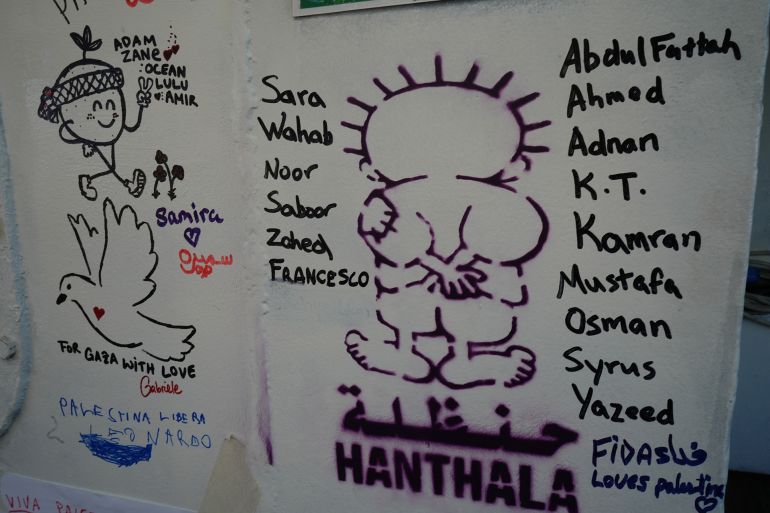 ADAM
ZANE
OCEAN
LULU
AMIR
Samira
سميرة
FOR GAZA WITH LOVE
Gabriele
PALESTINA LIBERA
LEONARDO
VIVA
Sara
Wahab
Noor
Saboor
Zahed
FRANCESCO
حنظلة
HANTHALA
Abdul Fattah
Ahmed
Adnan
K.T.
Kamran
Mustafa
Osman
Syrus
Yazeed
FiDA
Loves palestine